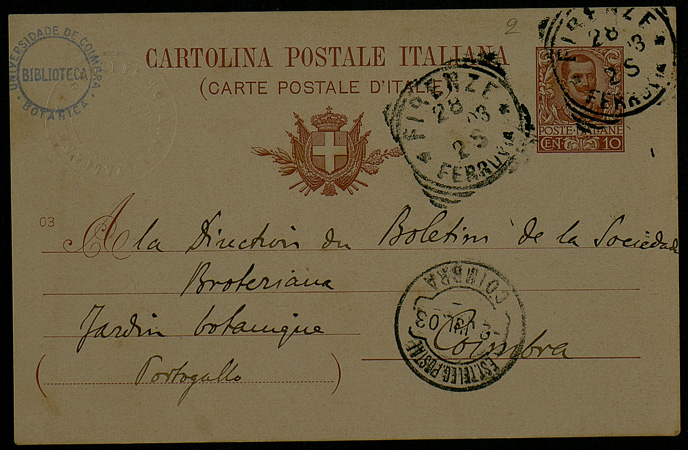 2
UNIVERSIDADE DE COIMBRA
BIBLIOTECA
BOTANICA
CARTOLINA POSTALE ITALIANA
(CARTE POSTALE D'ITALIE)
FIRENZE
28 03
2S
FERROVIA
FIRENZE
28 03
2S
FERROVIA
POSTE ITALIANE
CEN 10
03
A la Direction du Boletim de la Sociedad
Broteriana
Jardin botanique
Coimbra
(Portogallo)
COIMBRA
2 JUL 03
EST.TELEG.POSTAL